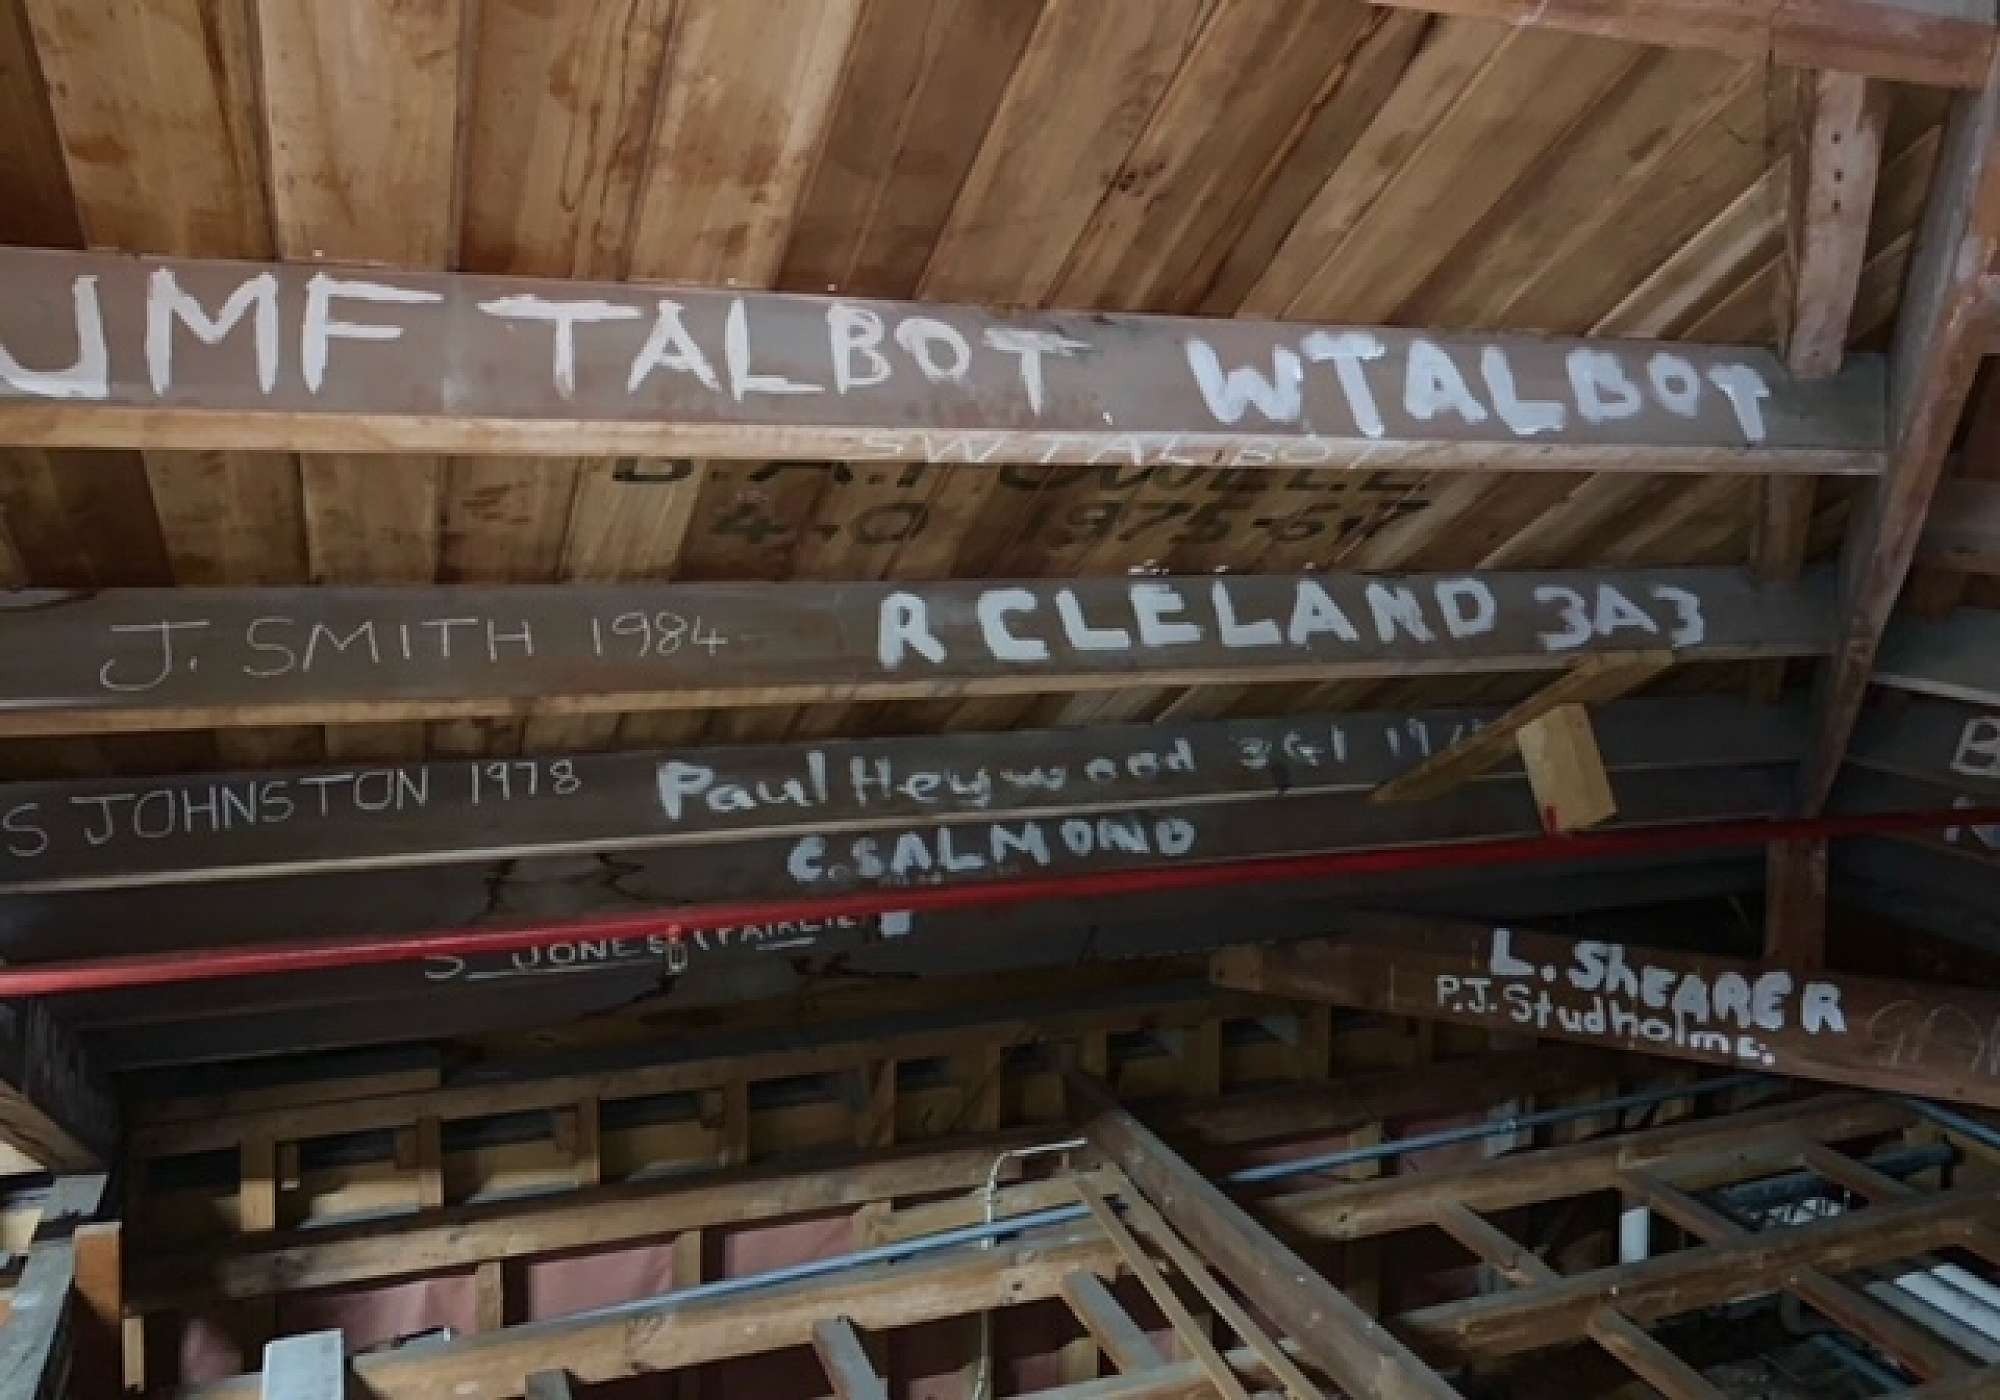 JMF TALBOT WTALBOT
SWTALBOT
B.A.POWELL
4.0 1975.6.7
J. SMITH 1984 R CLELAND 3A3
S JOHNSTON 1978 Paul Heywood 3G1
C.SALMOND
S JONES
L. ShEARER
P.J. Studholme.